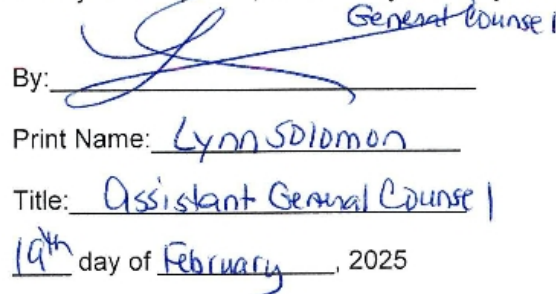 General Counsel
By:
Print Name: Lynn Solomon
Title: Assistant General Counsel
19th day of February, 2025